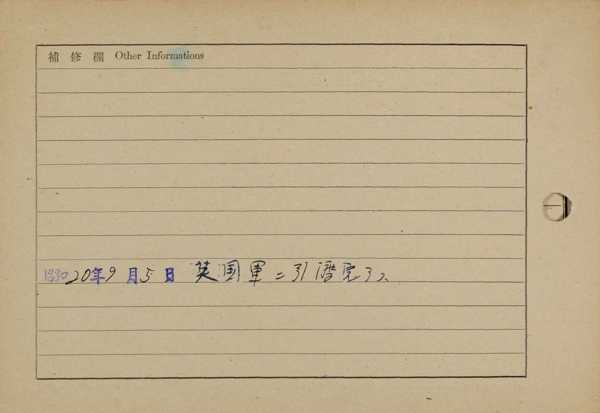 補修欄 Other Informations
昭和20年9月5日 英国軍ニ引渡完了ス